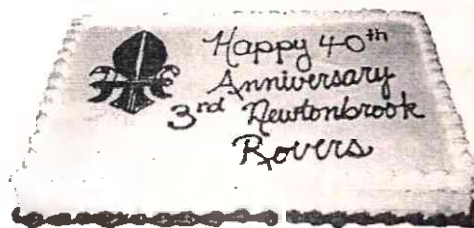 Happy 40th
Anniversary
3rd Newtonbrook
Rovers